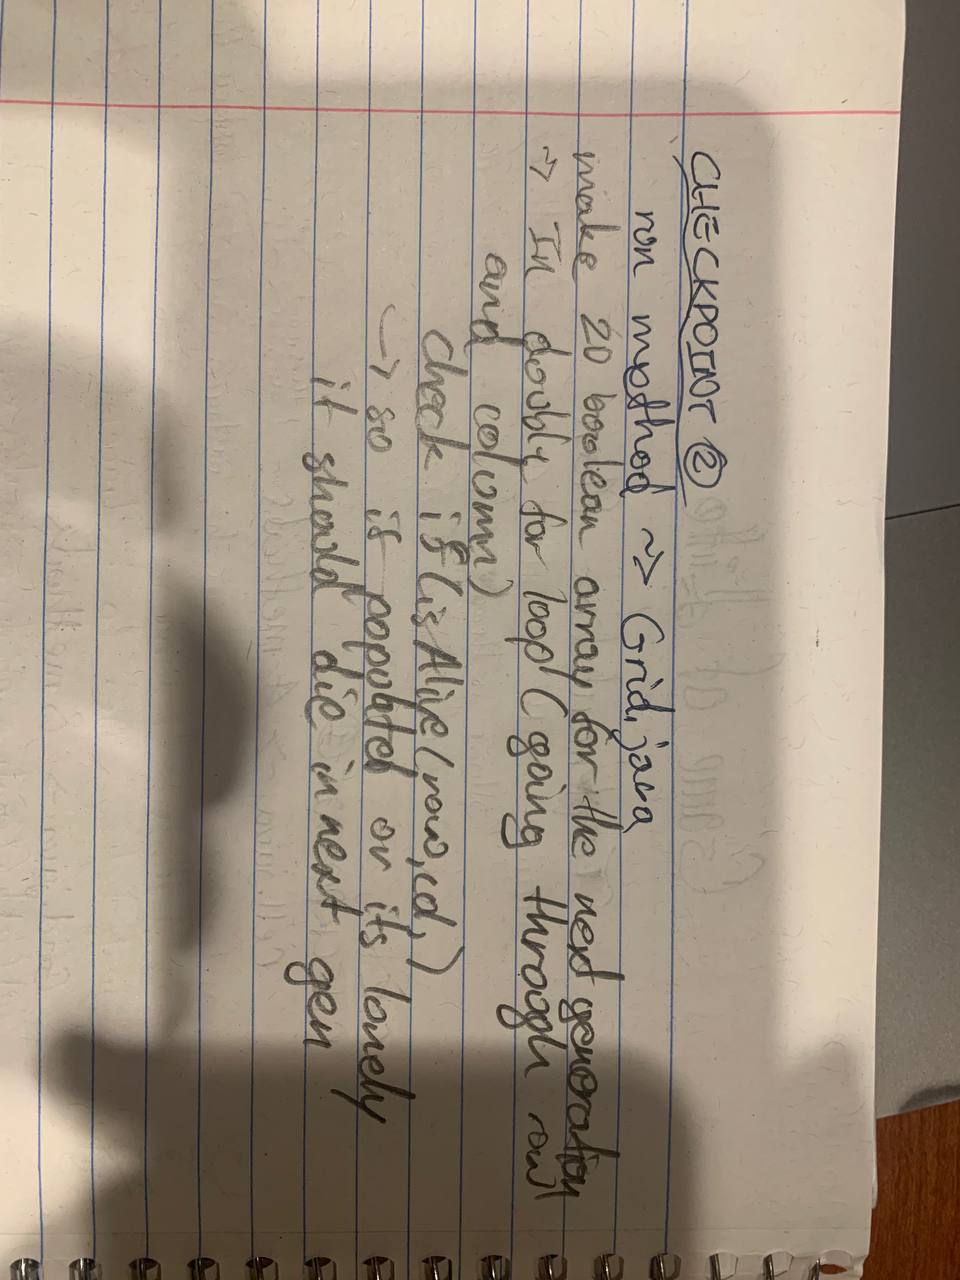 CHECKPOINT ②
run method ~> Grid.java
make 2D boolean array for the next generation
~> In doubly for loop ( going through row
and column)
Check if (isAlive(row,col,)
~> so if populated or its lonely
it should die in next gen